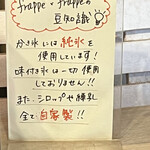 frappe × frappeの
豆知識
かき氷いは純氷を
使用しています！
味付き氷は一切使用
しておりません!!
また、シロップや練乳
全て自家製!!